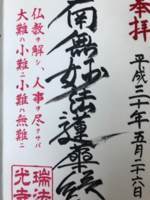 奉拝
平成三十年五月二十六日
南無妙法蓮華経
仏教ヲ解シ、人事ヲ尽クサバ
大難ハ小難ニ小難ハ無難ニ
瑞法
光寺